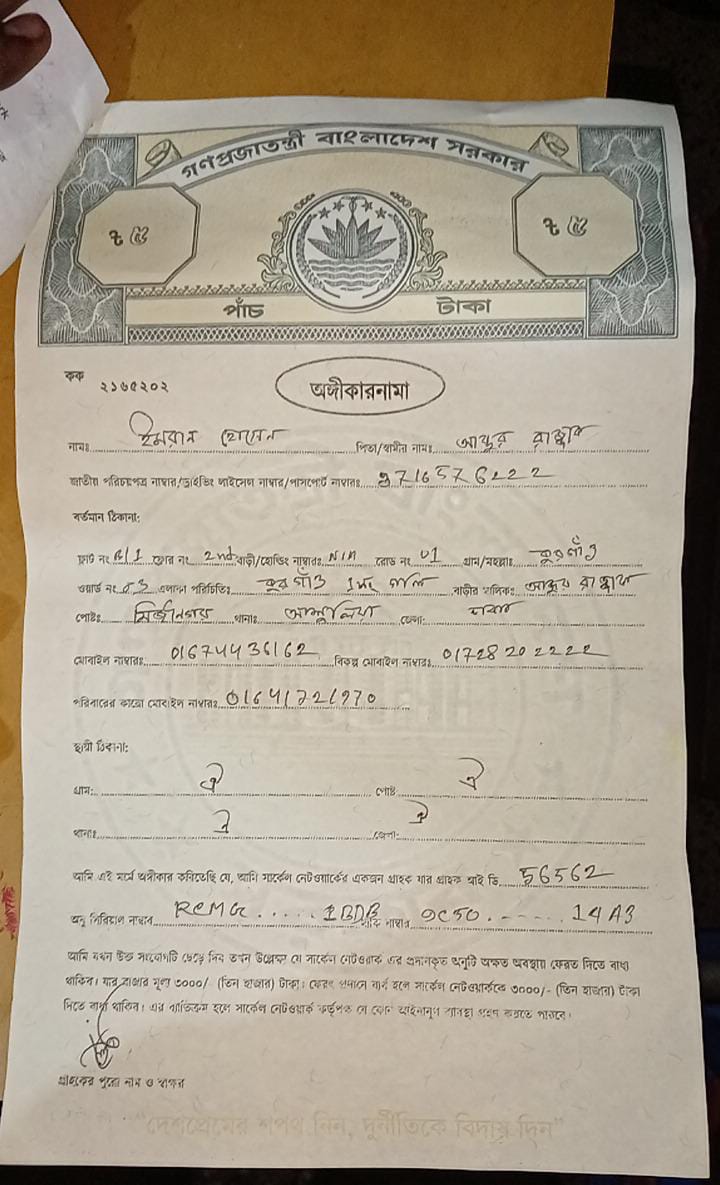 গণপ্রজাতন্ত্রী বাংলাদেশ সরকার
৳ ৫ ৳ ৫
পাঁচ টাকা
কক ২১৬৫২০২
অঙ্গীকারনামা
নামঃ ইমরান হোসেন পিতা/স্বামীর নামঃ আব্দুর রাজ্জাক
জাতীয় পরিচয়পত্র নাম্বার/ড্রাইভিং লাইসেন্স নাম্বার/পাসপোর্ট নাম্বারঃ 3716576222
বর্তমান ঠিকানা:
ফ্লাট নং B/1 ফ্লোর নং 2nd বাড়ী/হোল্ডিং নাম্বারঃ N/A রোড নং 01 গ্রাম/মহল্লাঃ কুরগাঁও
ওয়ার্ড নং 03 এলাকা পরিচিতিঃ কুরগাঁও 1নং গলি বাড়ীর মালিকঃ আব্দুর রাজ্জাক
পোষ্টঃ মির্জানগর থানাঃ আশুলিয়া জেলা: ঢাকা
মোবাইল নাম্বারঃ 01674436162 বিকল্প মোবাইল নাম্বারঃ 01728202222
পরিবারের কারো মোবাইল নাম্বারঃ 01641721970
স্থায়ী ঠিকানা:
গ্রাম: ঐ পোষ্ট ঐ
থানাঃ ঐ জেলা: ঐ
আমি এই মর্মে অঙ্গীকার করিতেছি যে, আমি সার্কেল নেটওয়ার্কের একজন গ্রাহক যার গ্রাহক আই ডি 56562
অনু সিরিয়াল নাম্বার RCMG.....1BDB নাম্বার 9C50.......14A3
আমি যখন উক্ত সংযোগটি ছেড়ে দিব তখন উল্লেক্ষ যে সার্কেল নেটওয়ার্ক এর প্রদানকৃত অনুটি অক্ষত অবস্থায় ফেরত দিতে বাধ্য
থাকিব। যার বাজার মূল্য ৩০০০/- (তিন হাজার) টাকা। ফেরৎ প্রদানে ব্যর্থ হলে সার্কেল নেটওয়ার্ককে ৩০০০/- (তিন হাজার) টাকা
দিতে বাধ্য থাকিব। এর ব্যতিক্রম হলে সার্কেল নেটওয়ার্ক কর্তৃপক্ষ যে কোন আইনানুগ ব্যবস্থা গ্রহন করতে পারবে।
গ্রাহকের পুরো নাম ও স্বাক্ষর
“দেশপ্রেমের শপথ নিন, দুর্নীতিকে বিদায় দিন”